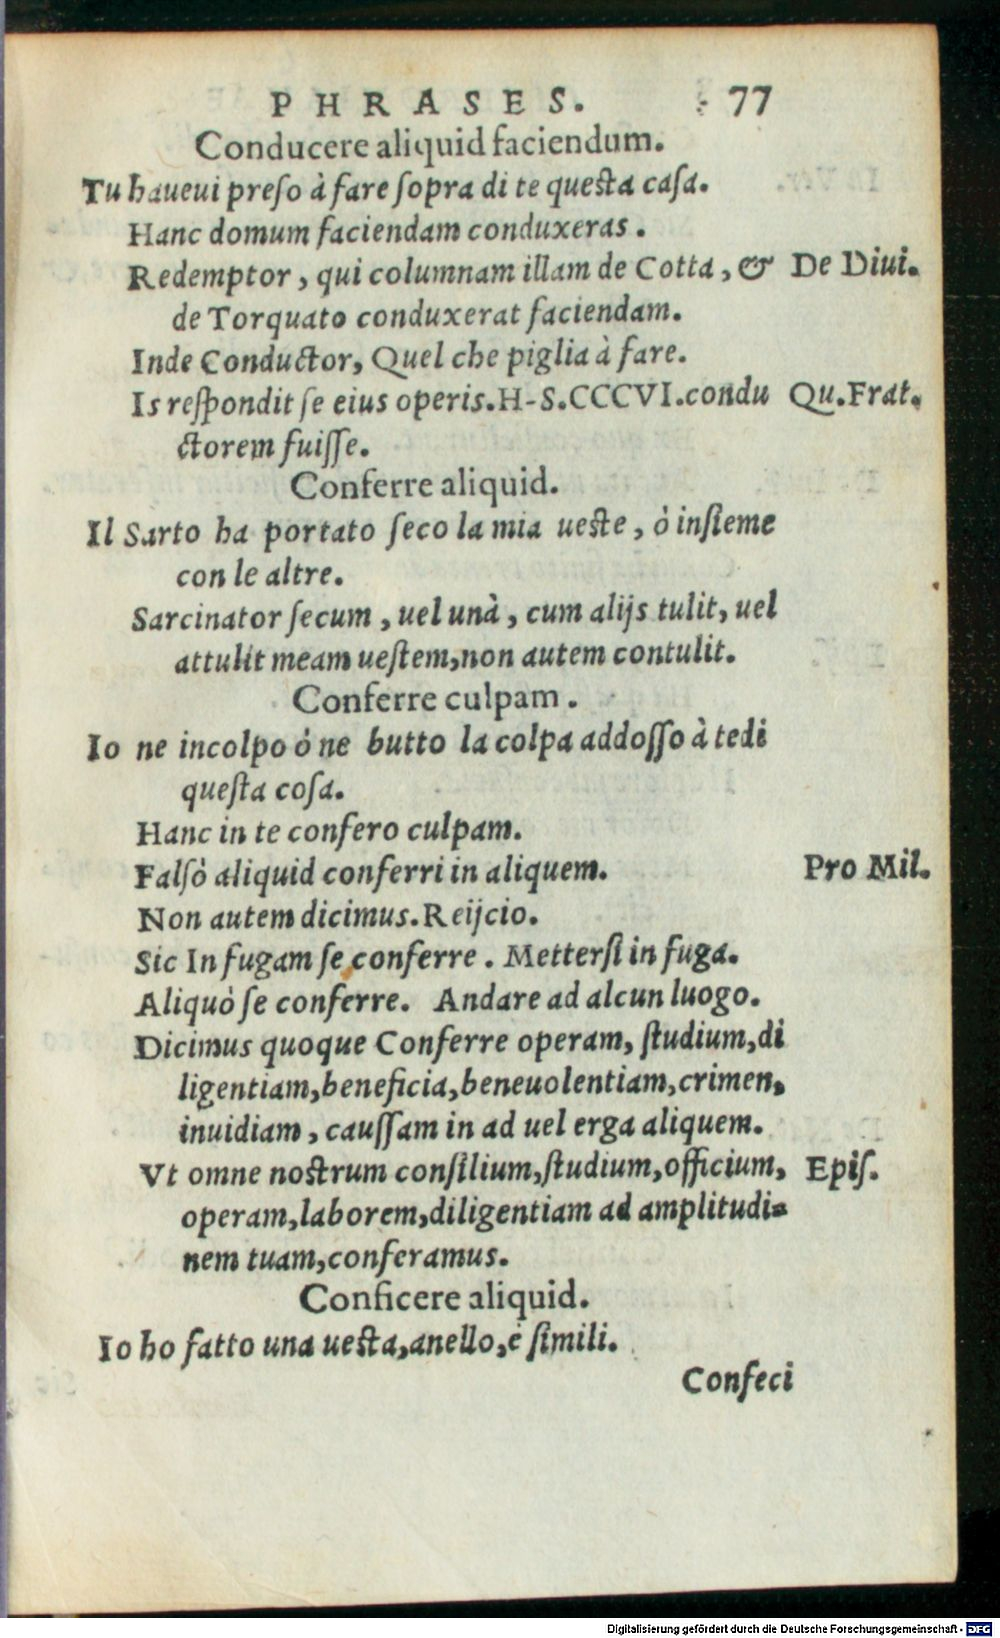 PHRASES. 77
Conducere aliquid faciendum.
Tu haueui preſo à fare ſopra di te queſta caſa.
Hanc domum faciendam conduxeras.
Redemptor, qui columnam illam de Cotta, & De Diui.
de Torquato conduxerat faciendam.
Inde Conductor, Quel che piglia à fare.
Is reſpondit ſe eius operis.H-S.CCCVI.condu Qu.Frat.
ctorem fuiſſe.
Conferre aliquid.
Il Sarto ha portato ſeco la mia ueſte, ò inſieme
con le altre.
Sarcinator ſecum, uel unà, cum alijs tulit, uel
attulit meam ueſtem,non autem contulit.
Conferre culpam.
Io ne incolpo ó ne butto la colpa addoſſo à te di
queſta coſa.
Hanc in te confero culpam.
Falſò aliquid conferri in aliquem. Pro Mil.
Non autem dicimus. Reijcio.
Sic In fugam ſe conferre. Metterſi in fuga.
Aliquò ſe conferre. Andare ad alcun luogo.
Dicimus quoque Conferre operam, ſtudium,di
ligentiam,beneficia,beneuolentiam,crimen,
inuidiam, cauſſam in ad uel erga aliquem.
Vt omne noſtrum conſilium,ſtudium,officium, Epiſ.
operam,laborem,diligentiam ad amplitudi-
nem tuam,conferamus.
Conficere aliquid.
Io ho fatto una ueſta,anello,e ſimili.
Confeci
Digitalisierung gefördert durch die Deutsche Forschungsgemeinschaft - DFG